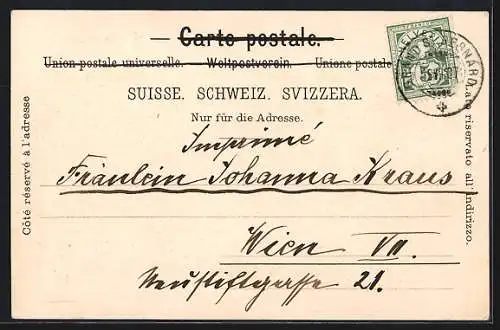 Carte postale.
Union postale universelle. — Weltpostverein. — Unione postale
SUISSE. SCHWEIZ. SVIZZERA.
Nur für die Adresse.
Imprimé
Fräulein Johanna Kraus
Wien VII.
Neustiftgasse 21.
Côté réservé à l'adresse
Lato riservato all'indirizzo.
HELVETIA
GRAND ST BERNARD